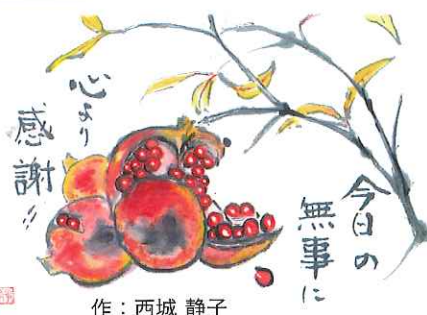 今日の
無事に
心より
感謝!!
作：西城 静子